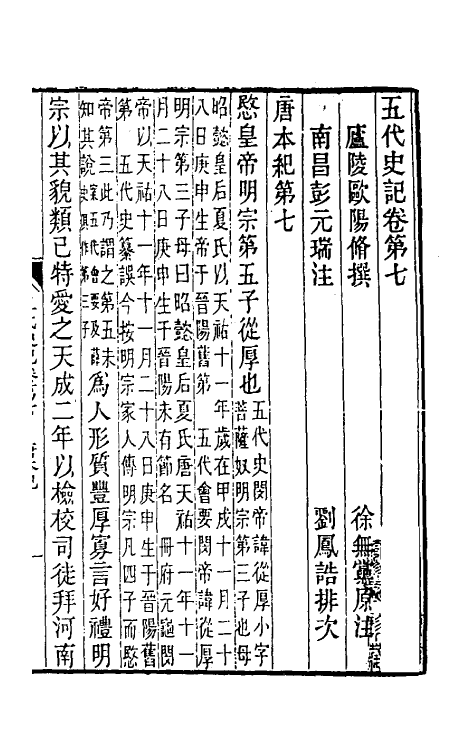 五代史記卷第七
廬陵歐陽脩撰　徐無黨原注
南昌彭元瑞注　劉鳳誥排次
唐本紀第七
愍皇帝明宗第五子從厚也
五代史閔帝諱從厚小字
菩薩奴明宗第三子也母
昭懿皇后夏氏以天祐十一年歲在甲戌十一月二十
八日庚申生帝于晉陽舊第　五代會要閔帝諱從厚
明宗第三子母曰昭懿皇后夏氏唐天祐十一年十一
月二十八日庚申生于晉陽未有節名　冊府元龜閔
帝以天祐十一年十一月二十八日庚申生于晉陽舊
第　五代史纂誤今按明宗家人傳明宗凡四子而愍
帝第三此乃謂之第五未
知其說
案五代會要及薛
史俱作第三子
爲人形質豐厚寡言好禮明
宗以其貌類己特愛之天成二年以檢校司徒拜河南